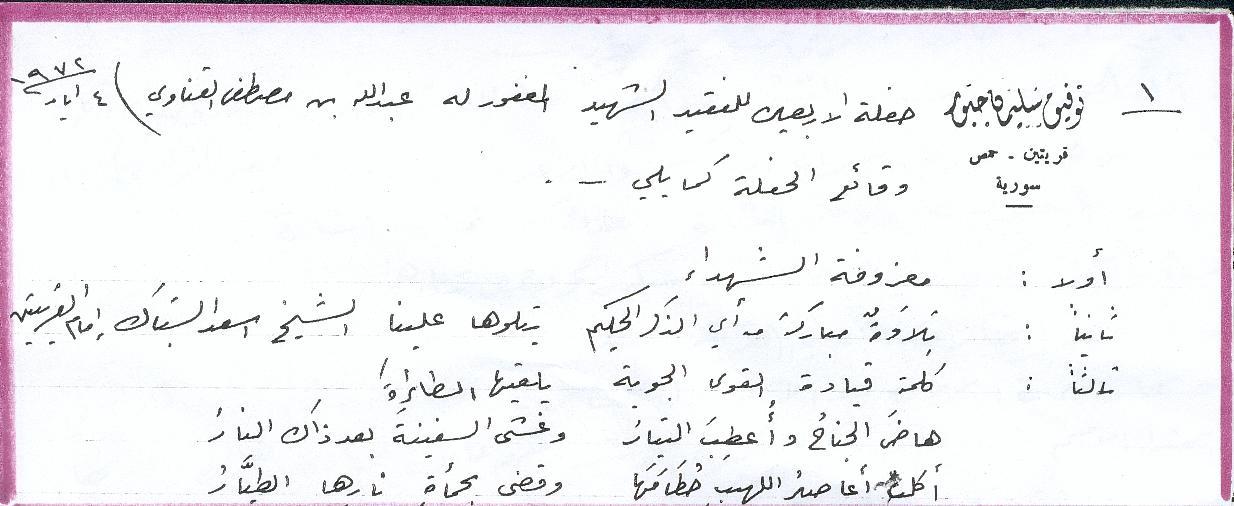 ١ توفيق سليمان خبية حفلة الاربعين للفقيد الشهيد المغفور له عبدالله بن مصطفى القناوي ) ٤ ايار ٩٧٢
قريتين - حمص
سورية
وقائع الحفلة كما يلي - .
أولا : معزوفة الشهداء
ثانياً : تِلاوَةٌ مباركة من أي الذكر الحكيم يتلوها علينا الشيخ اسعد السباك إمام القريتين
ثالثاً : كلمة قيادة القوى الجوية يلقيها
هاضَ الجناحُ وأُعطِبَ التيارُ وغشى السفينةَ بعد ذاك النارُ
أكلت أعاصير اللهيب حُطَامَهَا وقضى بحمأةِ نارها الطيَّارُ